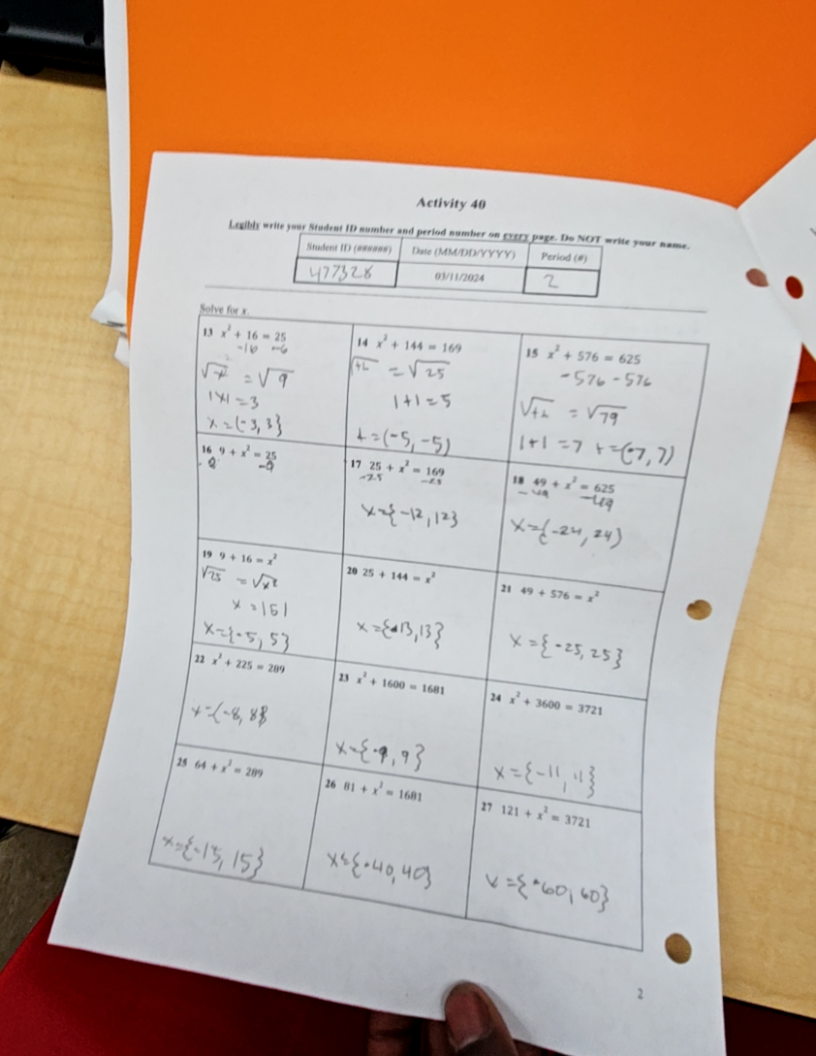 Activity 40
Legibly write your Student ID number and period number on every page. Do NOT write your name.
Student ID (######) Date (MM/DD/YYYY) Period (#)
477328 03/11/2024 2
Solve for x.
13 x² + 16 = 25
-16 -16
√x² = √9
|x| = 3
x = {-3, 3}
14 x² + 144 = 169
= √25
|+| = 5
+ = (-5, -5)
15 x² + 576 = 625
-576 -576
= √79
|+| = 7 + = (-7, 7)
16 9 + x² = 25
-9 -9
17 25 + x² = 169
-25 -25
x = {-12, 12}
18 49 + x² = 625
-49 -49
x = {-24, 24}
19 9 + 16 = x²
√25 = √x²
x = |5|
x = {-5, 5}
20 25 + 144 = x²
x = {-13, 13}
21 49 + 576 = x²
x = {-25, 25}
22 x² + 225 = 289
x = {-8, 8}
23 x² + 1600 = 1681
x = {-9, 9}
24 x² + 3600 = 3721
x = {-11, 11}
25 64 + x² = 289
x = {-15, 15}
26 81 + x² = 1681
x = {-40, 40}
27 121 + x² = 3721
x = {-60, 60}
2